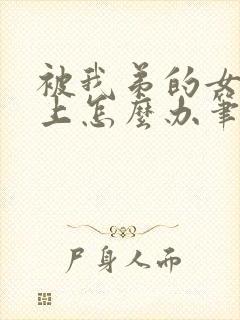 被我弟的女
上怎麼办筆
尸身人而